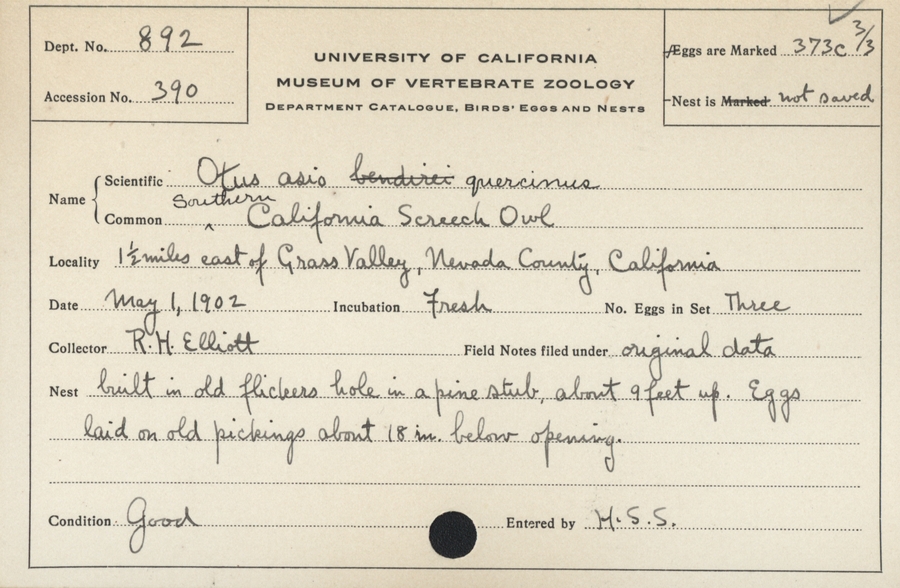 Dept. No. 892
Accession No. 390
UNIVERSITY OF CALIFORNIA
MUSEUM OF VERTEBRATE ZOOLOGY
DEPARTMENT CATALOGUE, BIRDS' EGGS AND NESTS
Eggs are Marked 373c 3/3
Nest is Marked not saved
Name
Scientific Otus asio bendirei quercinus
Southern
Common ‸ California Screech Owl
Locality 1½ miles east of Grass Valley, Nevada County, California
Date May 1, 1902 Incubation Fresh No. Eggs in Set Three
Collector R. H. Elliott Field Notes filed under original data
Nest built in old flickers hole in a pine stub, about 9 feet up. Eggs
laid on old pickings about 18 in. below opening.
Condition Good Entered by H. S. S.